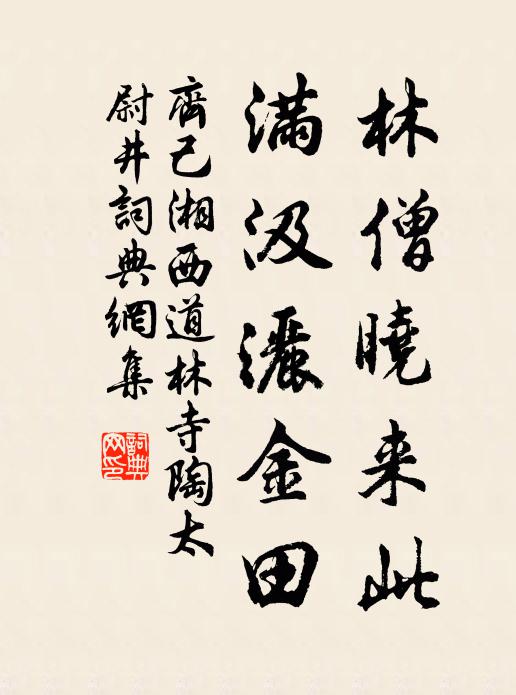 林僧曉来此
滿汲灑金田
齊己湘西道林寺陶太
尉井詞典網集
詞典網印